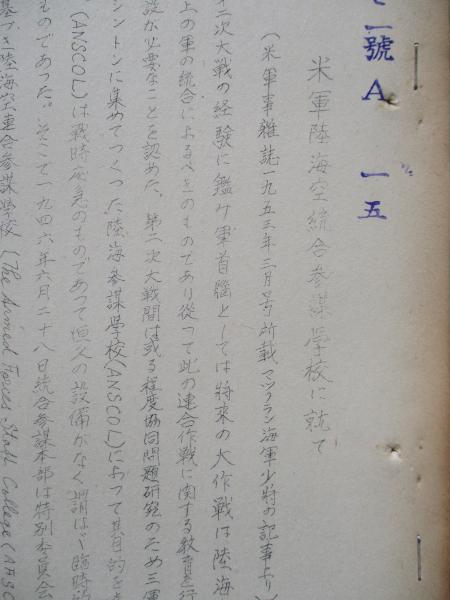 一號A 一五
米軍陸海空統合参謀学校に就て
(米軍事雑誌一九五三年二月号所載マックラン海軍少将の記事より)
二次大戦の経験に鑑み軍首脳としては将来の大作戦は陸海
上の軍の統合によるべきのものであり従って此の連合作戦に関する教育を行
設が必要なことを認めた。第二次大戦間は或る程度協同問題研究のため三軍
シントンに集めてつくった陸海参謀學校(ANSCOL)によって其目的を
(ANSCOL)は戦時応急のものであって恒久の設備がなく謂はゞ臨時的
ものであった。そこで一九四六年六月二十八日統合参謀本部は特別委員会
基づき陸海空連合参謀学校(The Armed Forces Staff College(AFSC